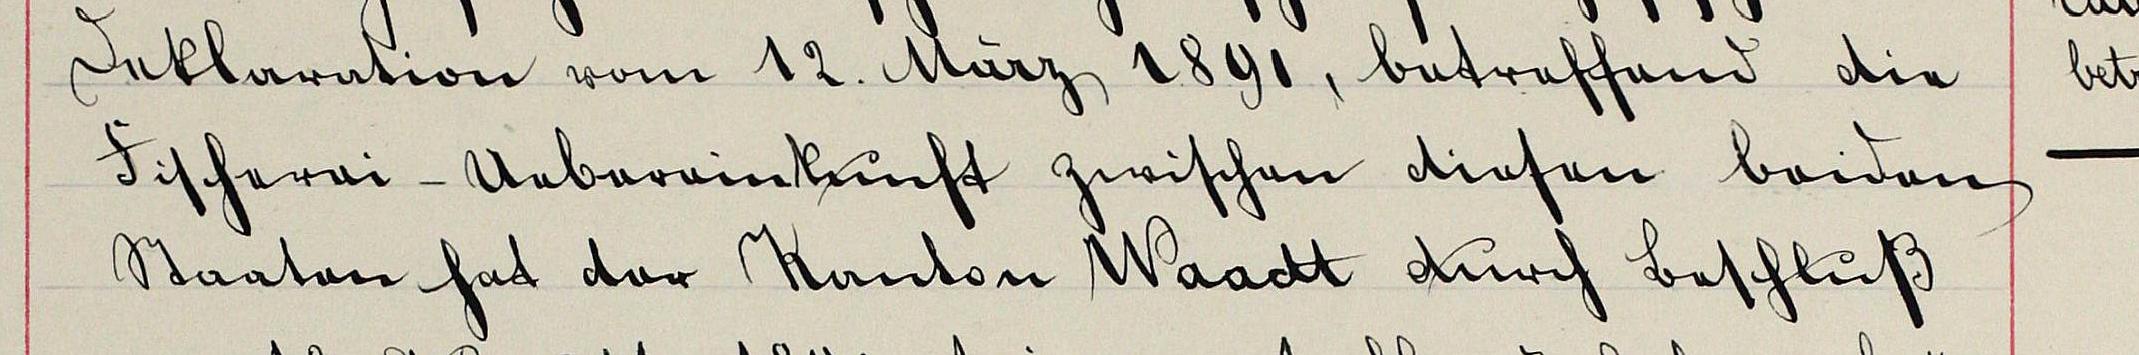 Deklaration vom 12. März 1891, betreffend die
Fischerei-Uebereinkunft zwischen diesen beiden
Staaten hat der Kanton Waadt durch Beschluß